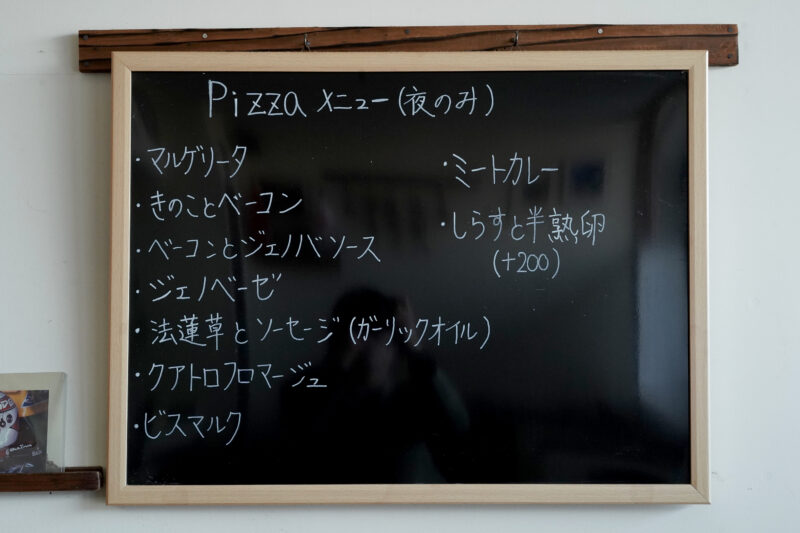 Pizza メニュー(夜のみ)
・マルゲリータ
・きのことベーコン
・ベーコンとジェノバソース
・ジェノベーゼ
・法蓮草とソーセージ(ガーリックオイル)
・クアトロフロマージュ
・ビスマルク
・ミートカレー
・しらすと半熟卵
(+200)